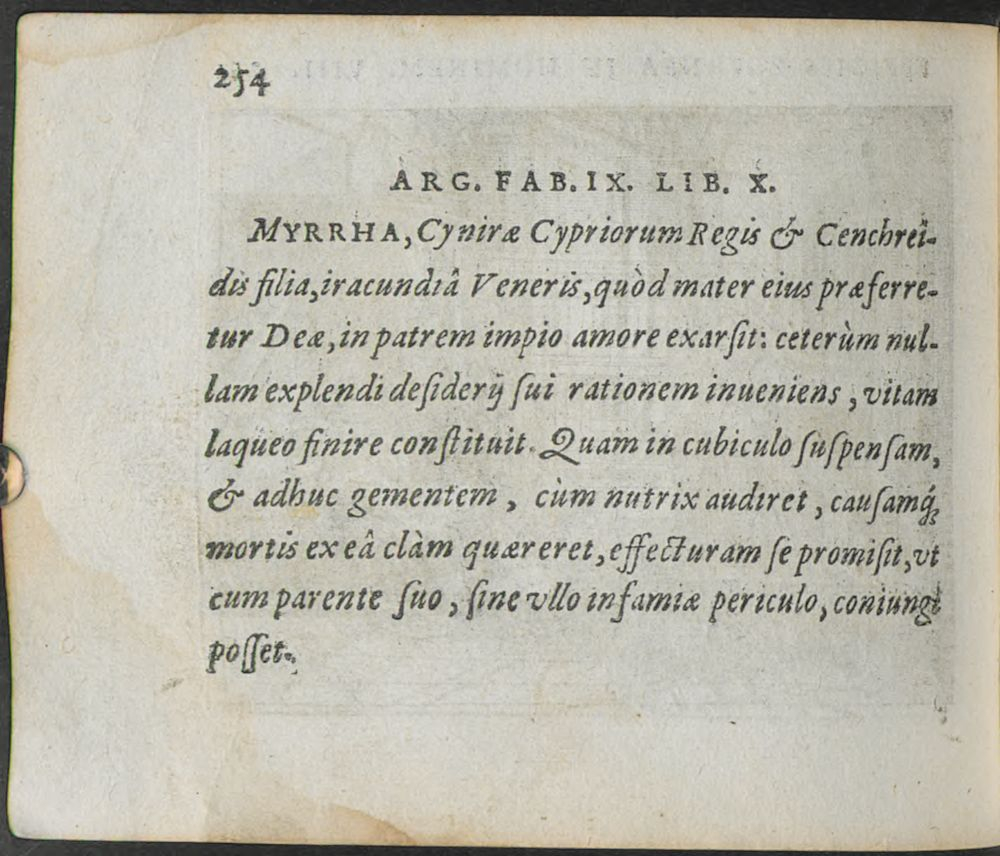 254
ARG. FAB. IX. LIB. X.
MYRRHA, Cyniræ Cypriorum Regis & Cenchreï-
dis filia, iracundiâ Veneris, quòd mater eius præferre-
tur Deæ, in patrem impio amore exarſit: ceterùm nul-
lam explendi deſiderij ſui rationem inueniens, vitam
laqueo finire conſtituit. Quam in cubiculo ſuſpenſam,
& adhuc gementem, cùm nutrix audiret, cauſamq́;
mortis ex eâ clàm quæreret, effecturam ſe promiſit, vt
cum parente ſuo, ſine vllo infamiæ periculo, coniungi
poſſet.